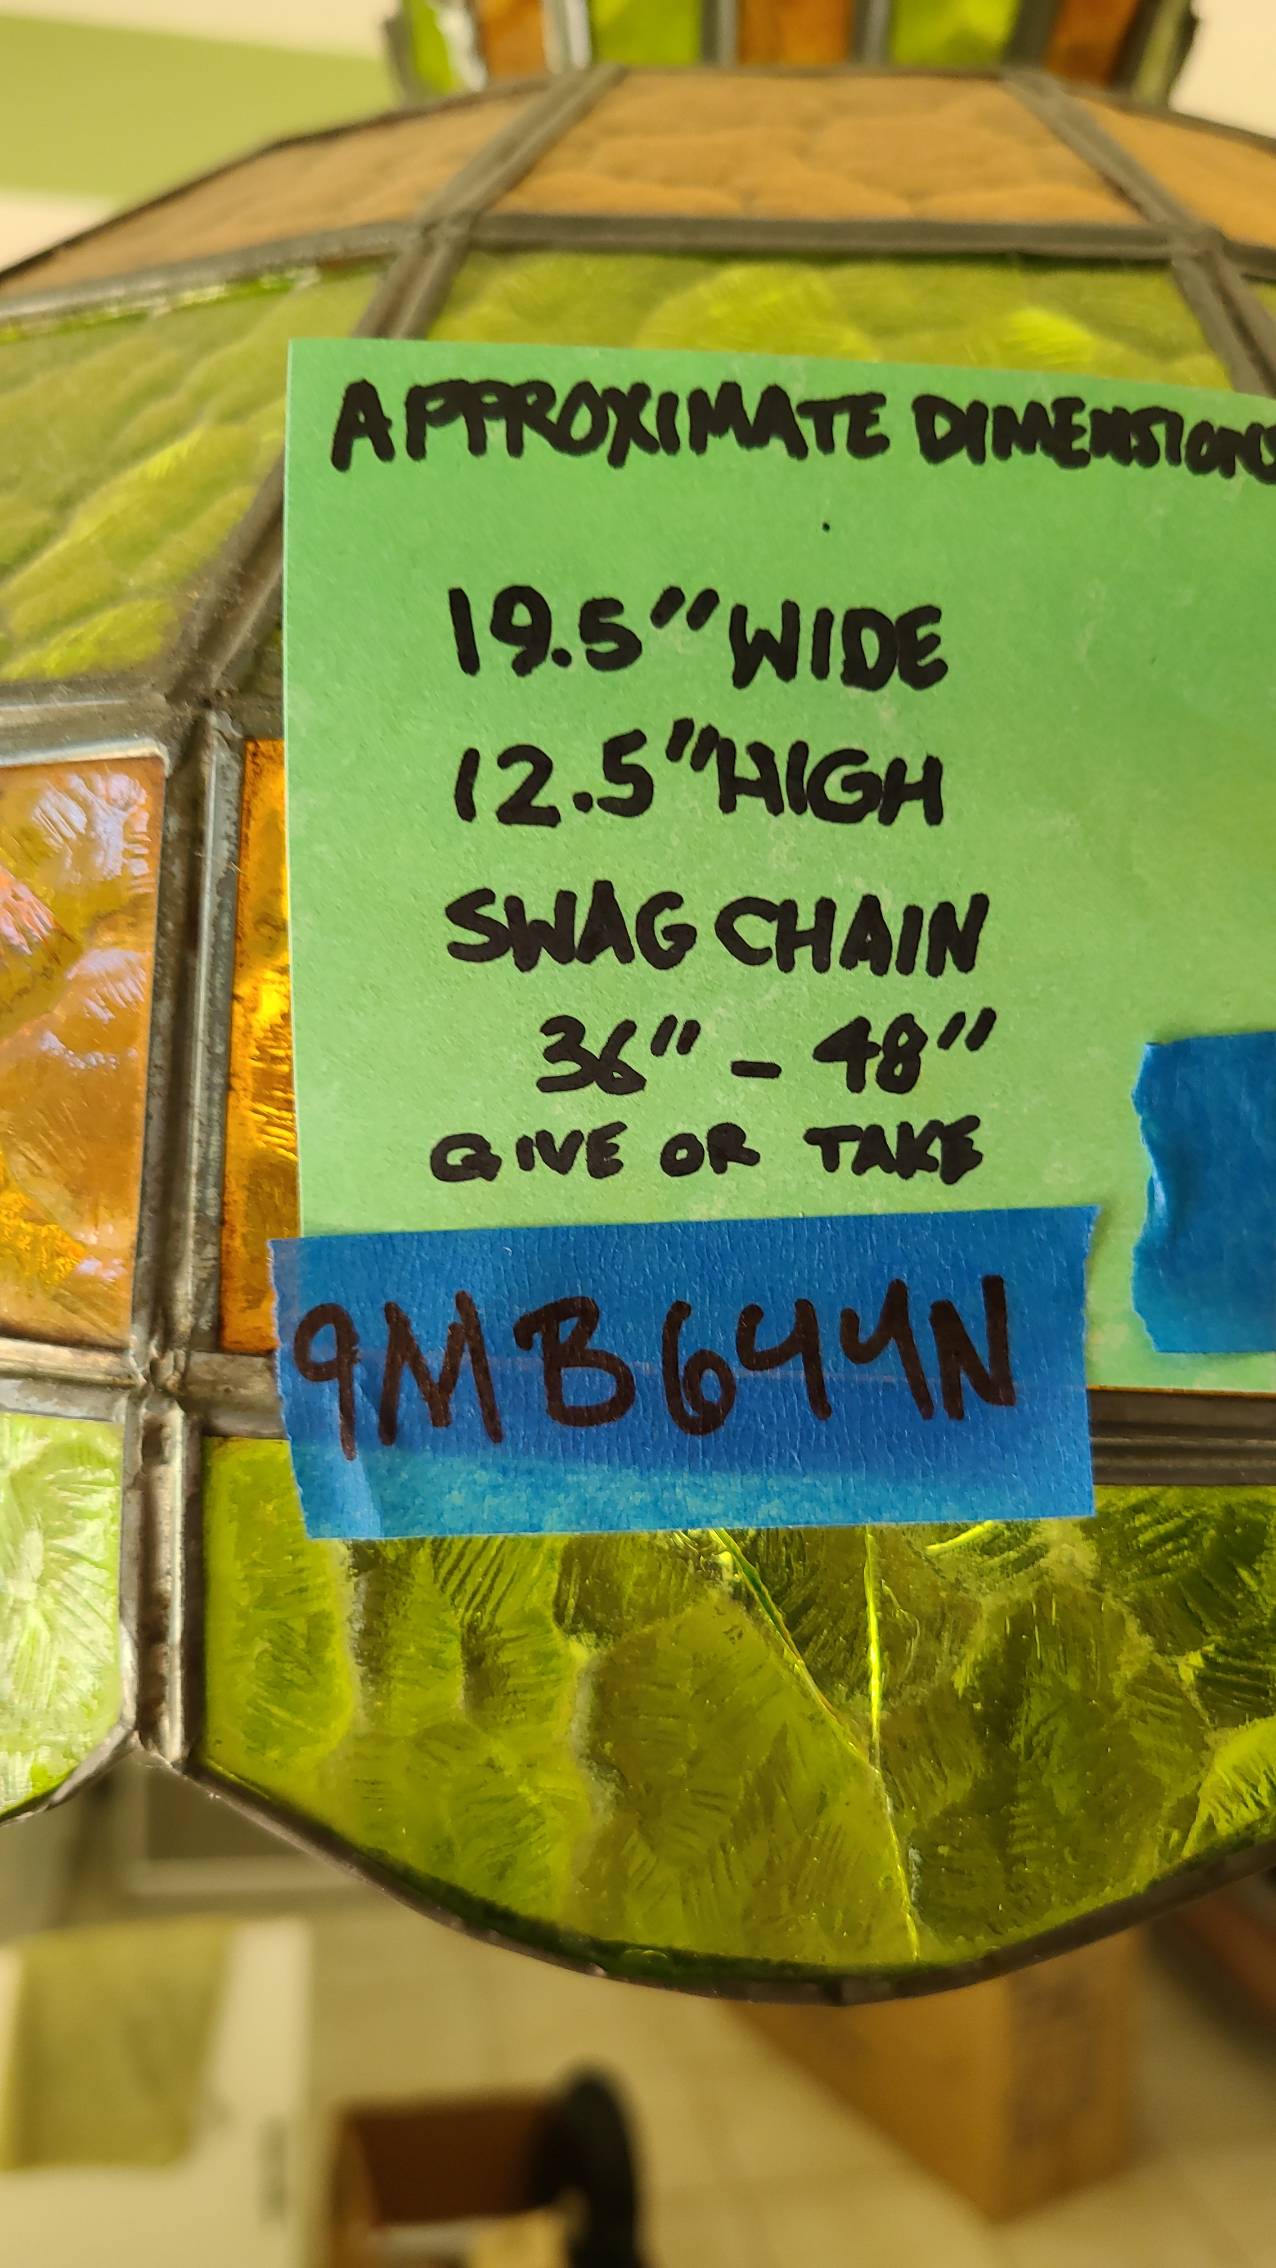 APPROXIMATE DIMENSIONS
19.5" WIDE
12.5" HIGH
SWAG CHAIN
36" - 48"
GIVE OR TAKE
9MB644N